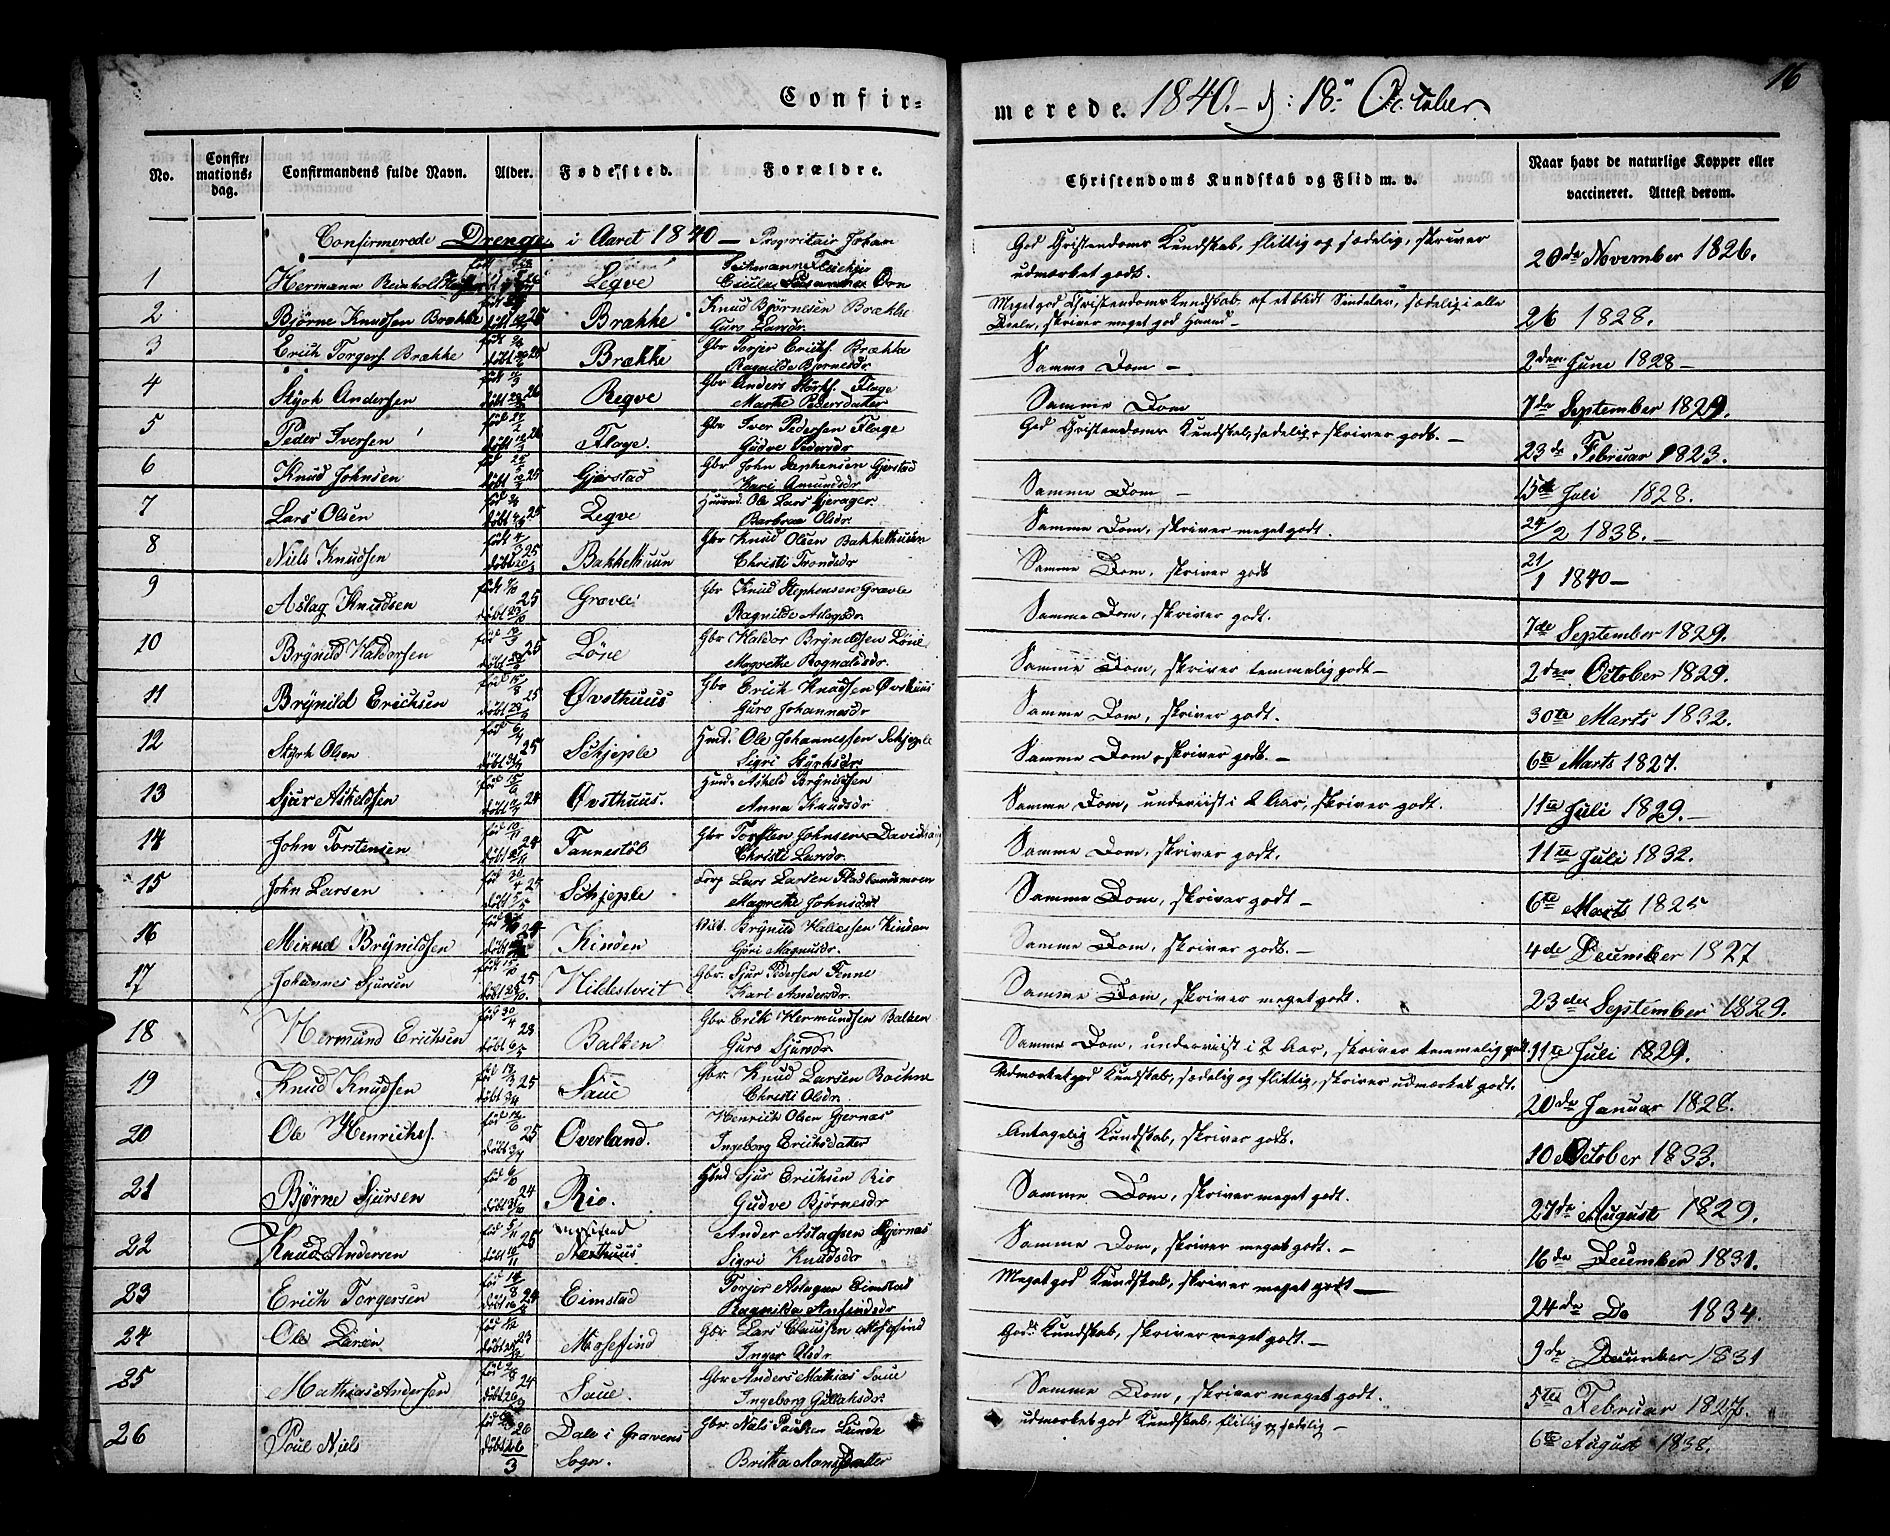 16
Confir-
merede. 1840. - d: 18de October.
No.
Confir-
mations-
dag.
Confirmandens fulde Navn.
Alder.
Fødested.
Forældre.
Christendoms Kundskab og Flid m. v.
Naar havt de naturlige Kopper eller
vaccineret. Attest derom.
Confirmerede Drenge i Aaret 1840 - Propritair Johan
God Christendoms Kundskab, flittig og sædelig, skriver
udmærket godt.
1 Hermann Reinholt Legve
20de November 1826.
2 Bjørne Knudsen Brække 25 Brække Knud Bjørnesen Brække
Guro Larsdr.
Meget god Christendoms Kundskab, af et blidt Sindelav, sædelig i alle
Deele, skriver meget god Haand -
2/6 1828.
3 Erich Torgers. Brække 25 Brække Gbr Torjer Erichs. Brække
Ragnilde Bjørnesdr.
Samme Dom -
2den Juni 1828 -
4 Andersen 26 Regve Gbr Anders Flage
Marthe Pedersdatter
Samme Dom
7de September 1829.
5 Peder Iversen 26 Flage. Gbr Iver Pedersen Flage
Gudve Pedersdr
God Christendoms Kundskab, sædelig, skriver godt. -
23de Februar 1823.
6 Knud Johnsen 25 Gjerstad Gbr John Stephensen Gjerstad
Kari Amundsdr
Samme Dom -
15de Juli 1828.
7 Lars Olsen 25 Legve Huusmd. Ole Lars Gjerager.
Barbraa Olsdr.
Samme Dom, skriver meget godt.
24/2 1838. -
8 Niels Knudsen 25 Bakkethuun Gbr Knud Olsen Bakkethuun
Christi Trondsdr
Samme Dom, skriver godt
21/1 1840 -
9 Aslag Knudsen 25 Gravle Gbr Knud Stephensen Gravle
Ragnilde Aslagsdr.
Samme Dom, skriver godt.
7de September 1829.
10 Brÿnild Haldorsen 25 Løne Gbr Haldor Brÿnildsen Løne
Magrethe Rognaldsdr.
Samme Dom, skriver temmelig godt -
2den October 1829.
11 Brÿnild Erichsen 25 Øvsthuus Gbr Erich Knudsen Øvsthuus
Guro Johannesdr
Samme Dom, skriver godt.
30te Marts 1832.
12 Stÿrk Olsen 25 Skjeple Hmd. Ole Johannessen Skjeple
Sigri Stÿrksdr
Samme Dom, skriver godt. -
6te Marts 1827.
13 Sjur Askeldsen 24 Øvsthuus. Huusmd Askeld Brÿnildsen
Anna Knudsdr
Samme Dom, underviist i 2 Aar, skriver godt.
11te Juli 1829. -
14 John Torstensen 24 Fannestøl Gbr Torsten Johnsen Davidhaug
Christi Larsdr.
Samme Dom, skriver godt.
11te Juli 1832.
15 John Larsen 25 Skjeple Lars Larsen
Magrethe Johnsdr
Samme Dom, skriver godt -
6te Marts 1825
16 Mikkel Brÿnildsen 24 Kinden Brÿnild Kinden
Gÿri Magnusdr.
Samme Dom, skriver godt. -
4de December 1827
17 Johannes Sjursen 25 Hildestveit Gbr. Sjur Pedersen Fenne
Kari Andersdr.
Samme Dom, skriver meget godt.
23de September 1829.
18 Hermund Erichsen 23 Balken Gbr Erik Hermundsen Balken
Guro Sjursdr
Samme Dom, underviist i 2 Aar, skriver temmelig godt
11te Juli 1829.
19 Knud Knudsen 25 Saue Gbr. Knud Larsen
Christi Olsdr.
Udmærket god Kundskab, sædelig og flittig, skriver udmærket godt.
20de Januar 1828.
20 Ole Henrichs. 25 Overland. Henrich Olsen Gjernæs
Ingeborg Erichsdatter
Antagelig Kundskab, skriver godt.
10 October 1833.
21 Bjørne Sjursen 24 Rio. Hmd Sjur Erichsen Rio
Gudve Bjørnesdr
Samme Dom, skriver meget godt.
27de August 1829.
22 Knud Andersen 25 Ander Aslagsen Gjernæs
Sigri Knudsdr
Samme Dom, skriver meget godt. -
16de December 1831.
23 Erich Torgersen 24 Eimstad Torjer Aslagsen Eimstad
Meget god Kundskab, skriver meget godt -
24de Do 1834.
24 Ole Larsen 23 Mosefind Gbr Lars Claussen Mosefind
Inger Olsdr.
God Kundskab, skriver meget godt. -
9de December 1831
25 Mathias Andersen 24 Saue. Gbr Anders Mathias Saue
Ingeborg Gullaksdr.
Samme Dom, skriver meget godt.
5te Februar 1827.
26 Poul Niels 26 Dale i Gravens
Sogn. Gbr. Nils Poulsen Lunde
Britha Monsdatter
udmærket god Kundskab, flittig og sædelig -
6te August 1838.